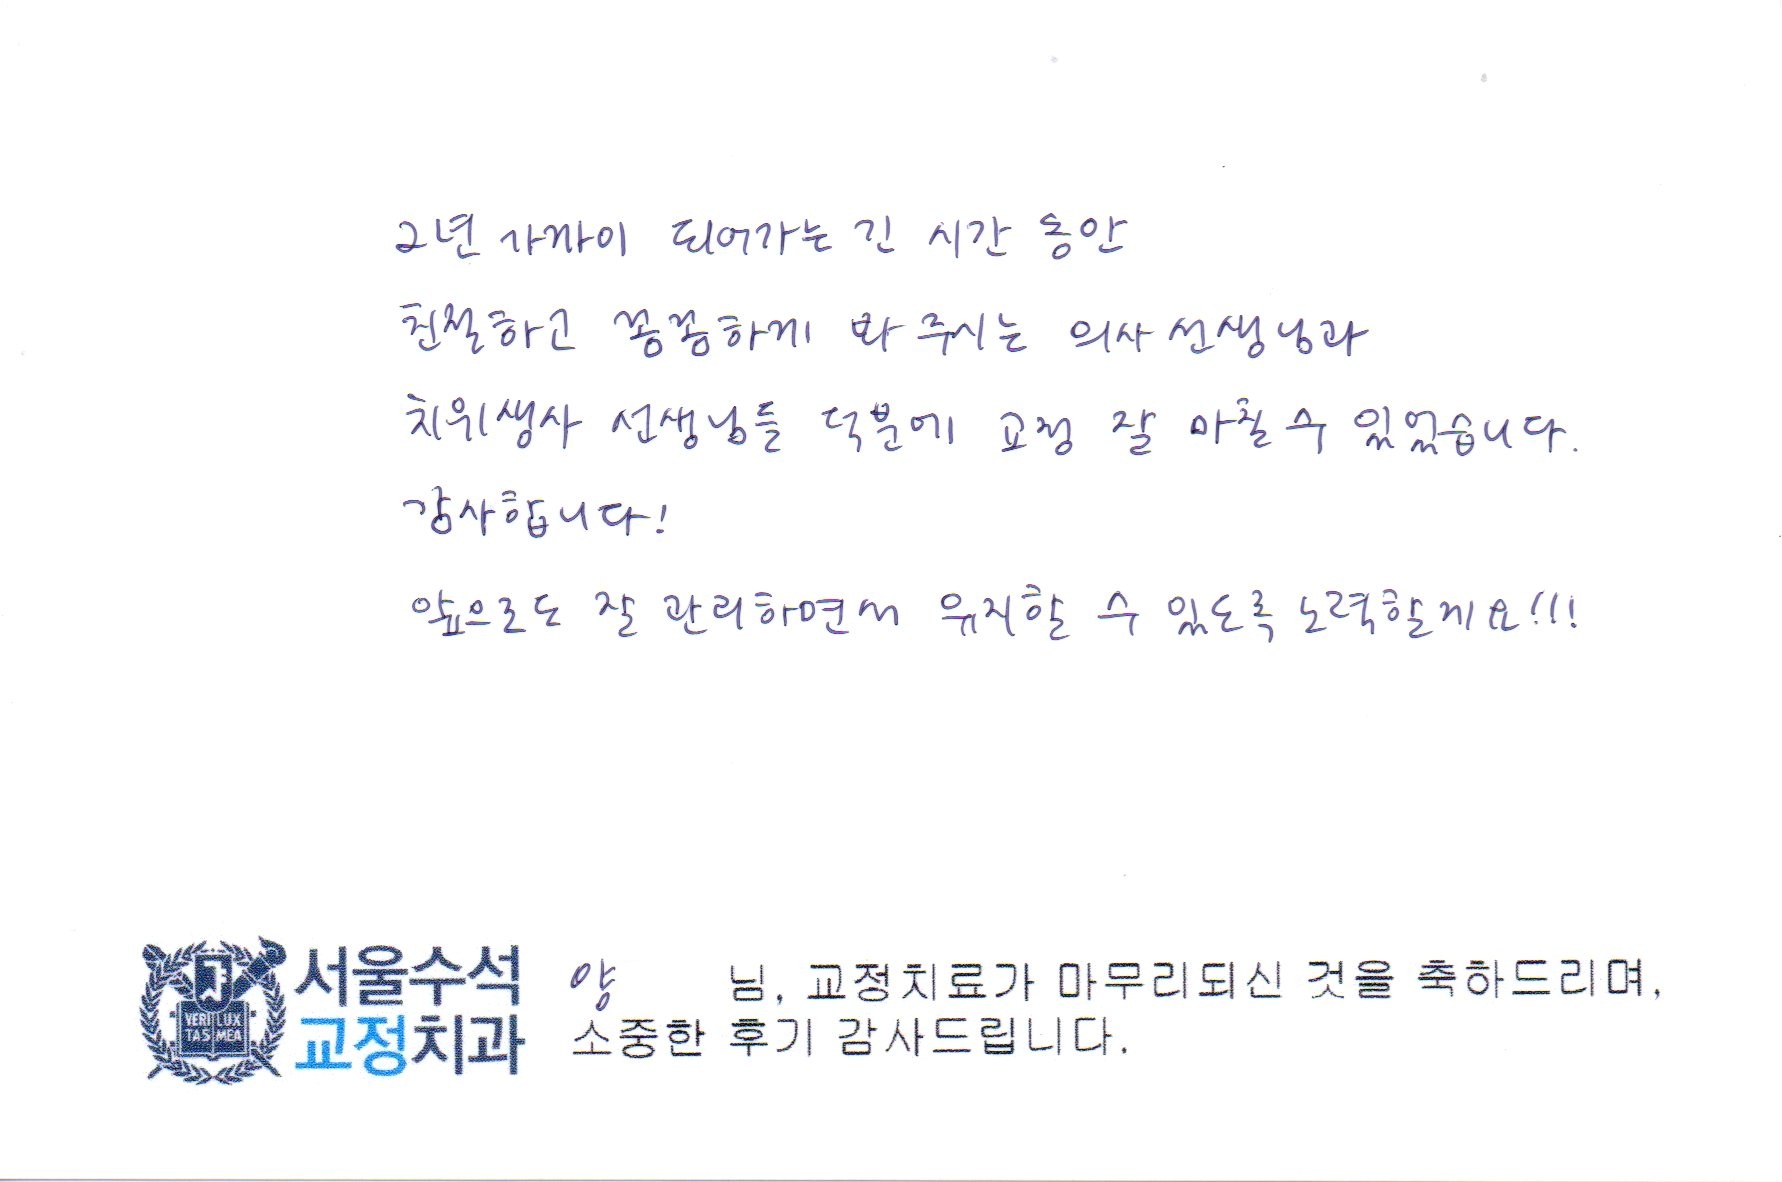 2년 가까이 되어가는 긴 시간 동안
친절하고 꼼꼼하게 봐 주시는 의사 선생님과
치위생사 선생님들 덕분에 교정 잘 마칠 수 있었습니다.
감사합니다!
앞으로도 잘 관리하면서 유지할 수 있도록 노력할게요!!!
서울수석
교정치과
VERI LUX
TAS MEA
양 님, 교정치료가 마무리되신 것을 축하드리며,
소중한 후기 감사드립니다.